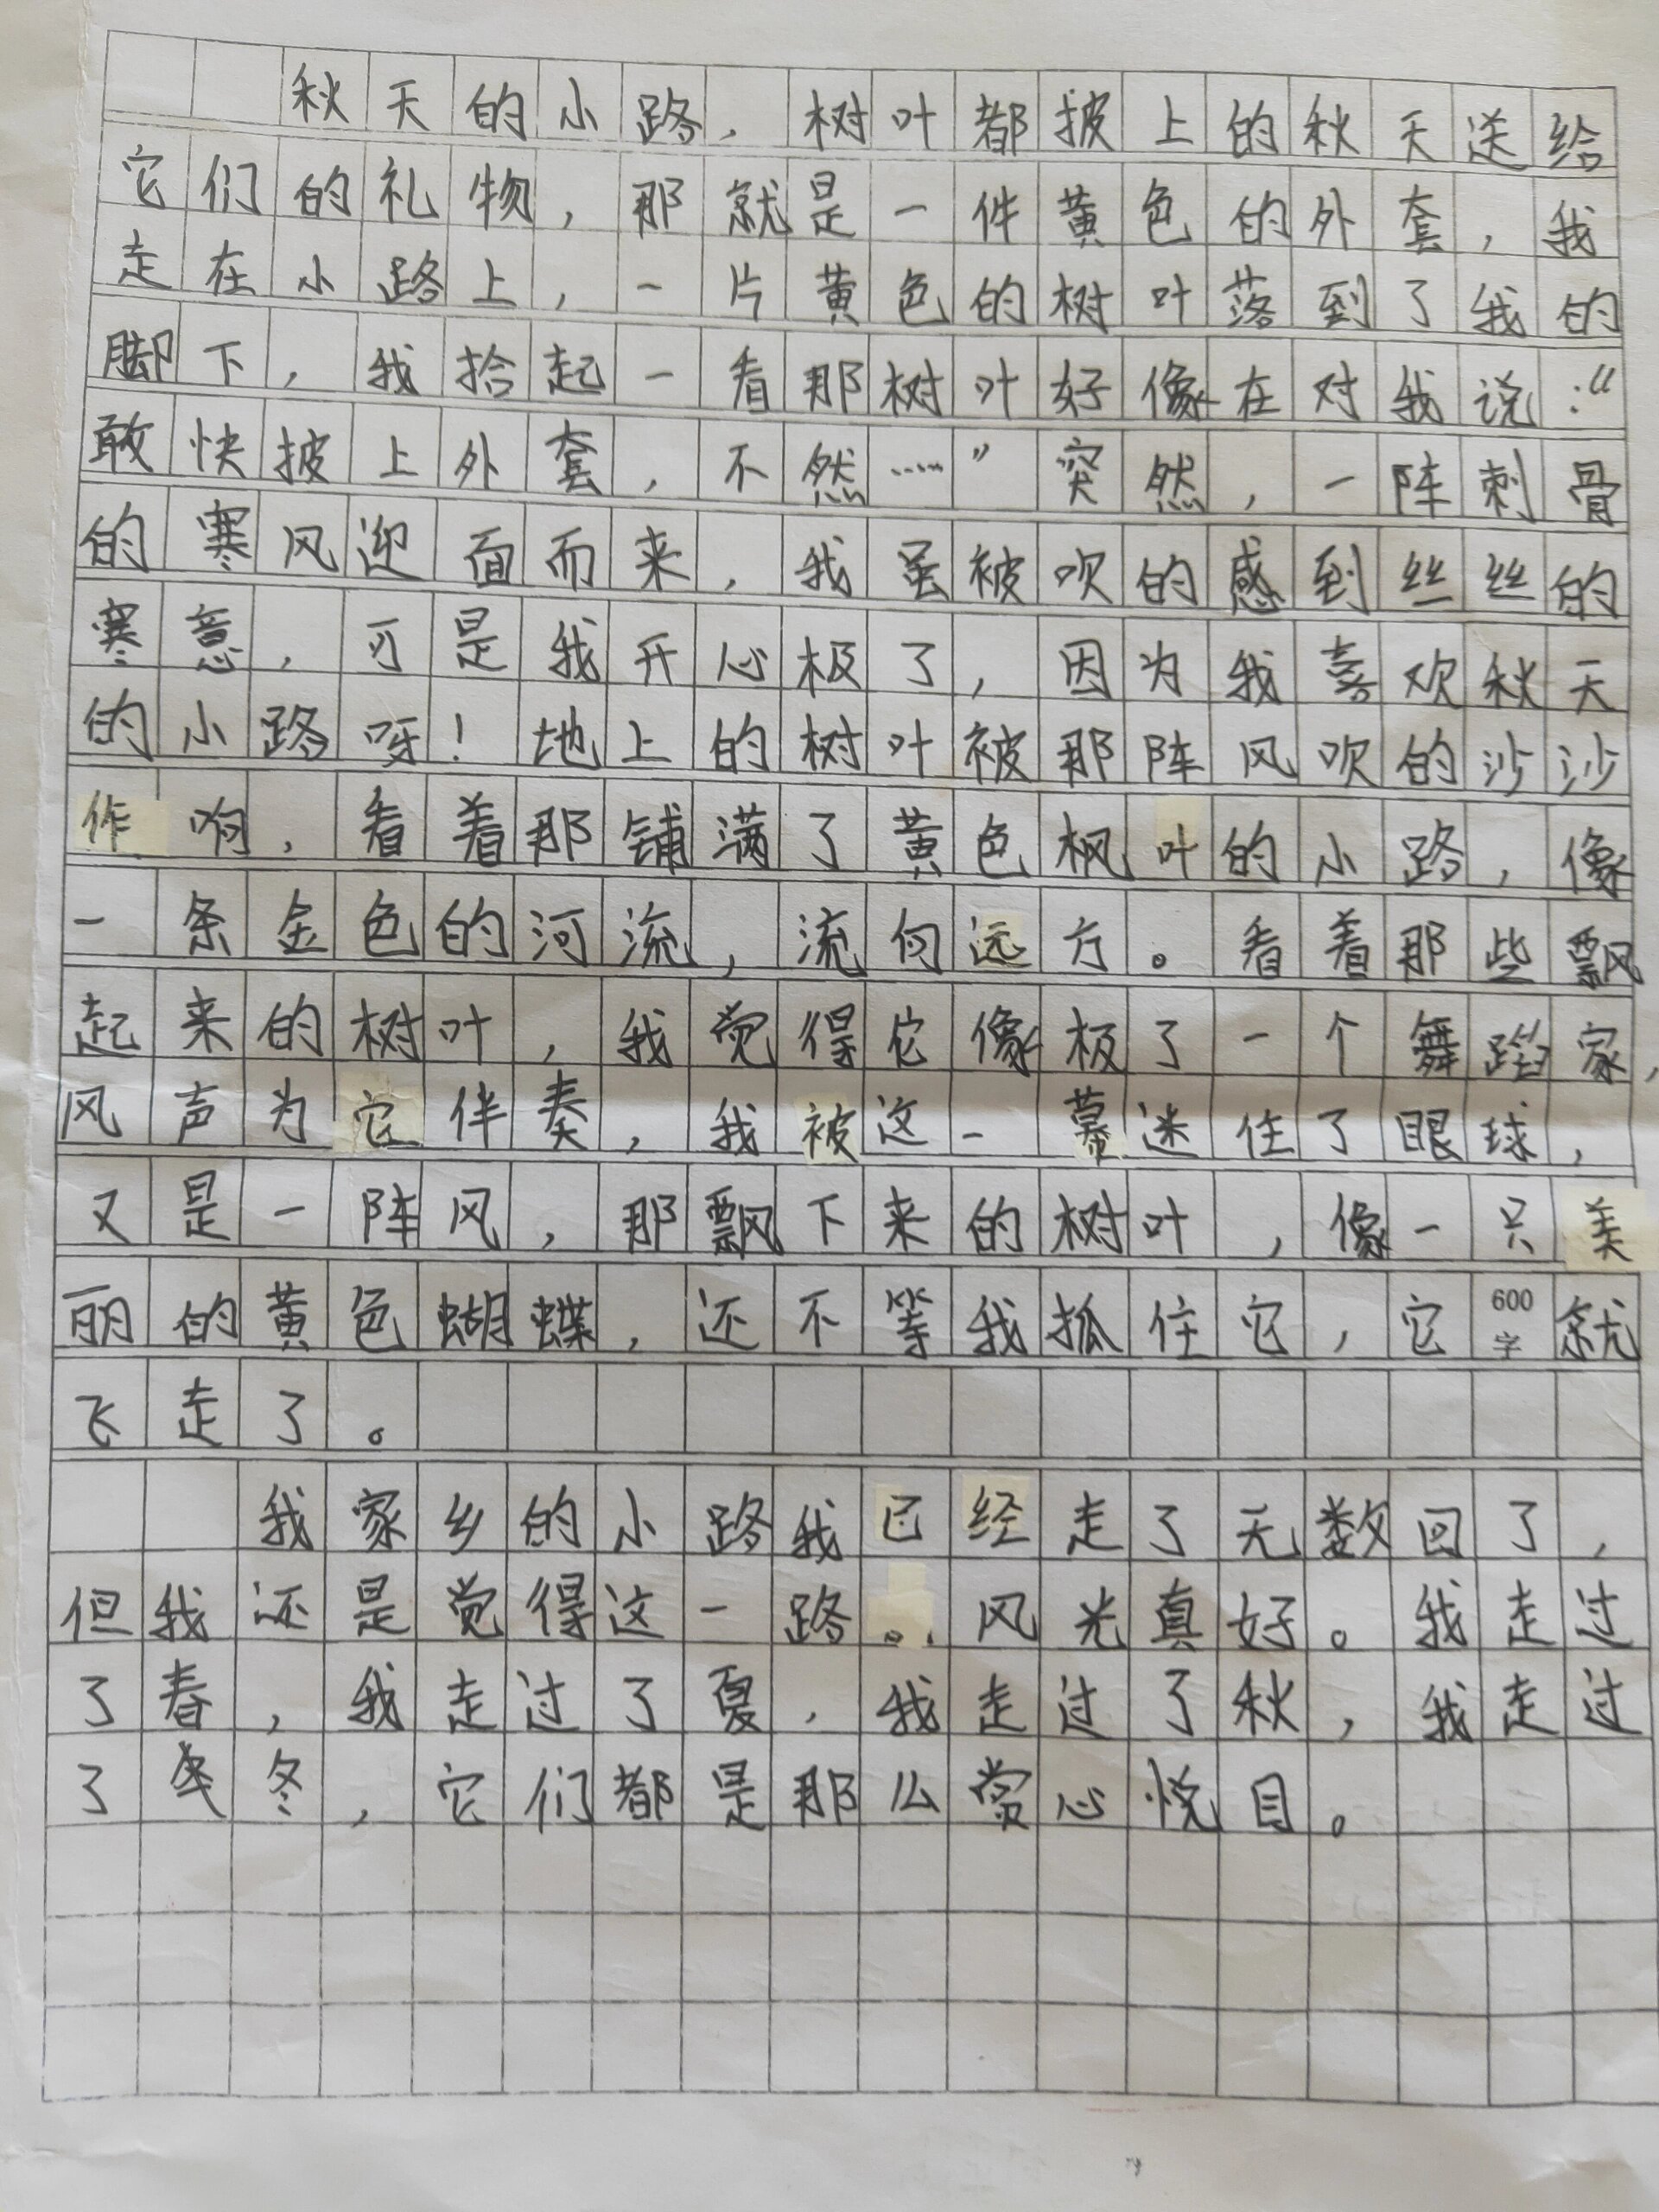 秋天的小路，树叶都披上的秋天送给
它们的礼物，那就是一件黄色的外套，我
走在小路上，一片黄色的树叶落到了我的
脚下，我拾起一看那树叶好像在对我说：“
敢快披上外套，不然……”突然，一阵刺骨
的寒风迎面而来，我虽被吹的感到丝丝的
寒意，可是我开心极了，因为我喜欢秋天
的小路呀！地上的树叶被那阵风吹的沙沙
作响，看着那铺满了黄色枫叶的小路，像
一条金色的河流，流向远方。看着那些飘
起来的树叶，我觉得它像极了一个舞蹈家，
风声为它伴奏，我被这一幕迷住了眼球，
又是一阵风，那飘下来的树叶，像一只美
丽的黄色蝴蝶，还不等我抓住它，它就
600字
飞走了。
我家乡的小路我已经走了无数回了，
但我还是觉得这一路。风光真好。我走过
了春，我走过了夏，我走过了秋，我走过
了冬，它们都是那么赏心悦目。